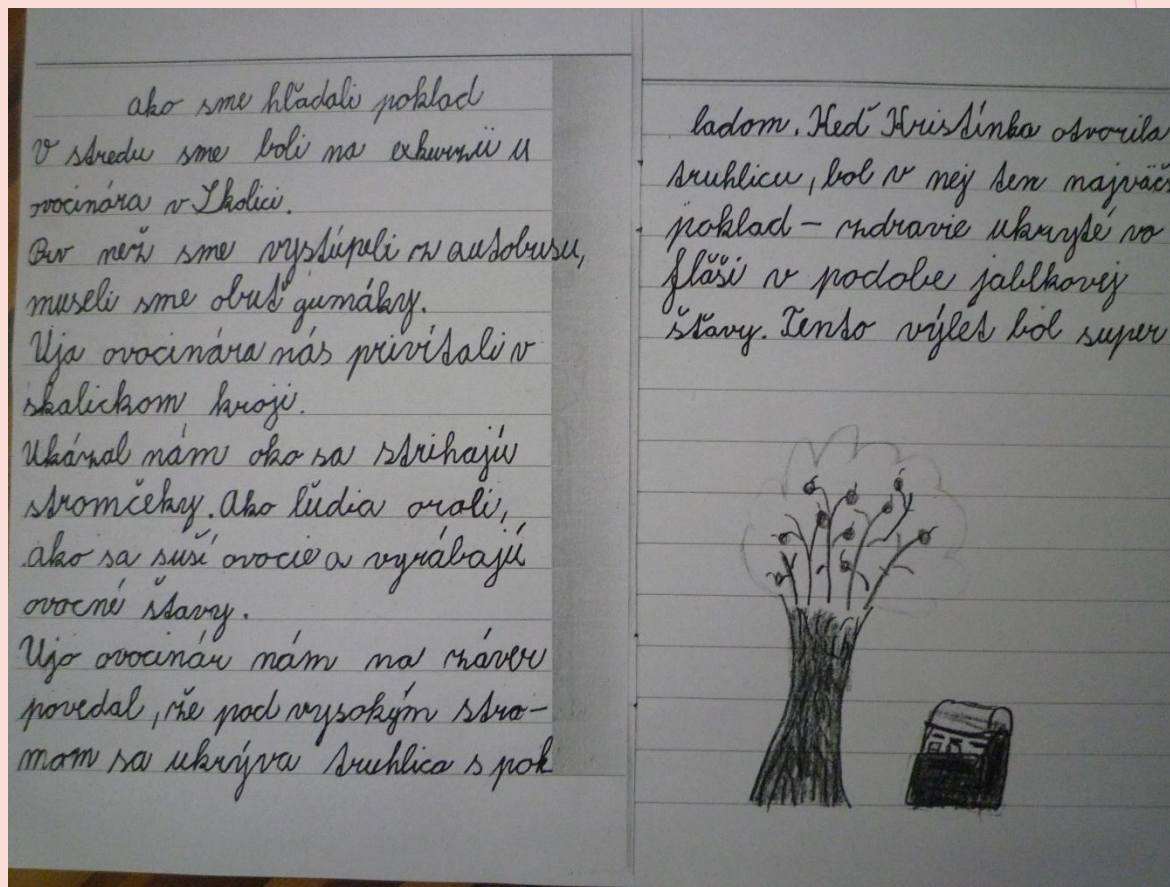 ako sme hľadali poklad
V stredu sme boli na exkurzii u
ovocinára v Skalici.
Prv než sme vystúpili z autobusu,
museli sme obuť gumáky.
Uja ovocinára nás privítali v
skalickom kroji.
Ukázal nám ako sa strihajú
stromčeky. Ako ľudia orali,
ako sa suší ovocie a vyrábajú
ovocné šťavy.
Ujo ovocinár nám na záver
povedal, že pod vysokým stro-
mom sa ukrýva truhlica s pok
ladom. Keď Kristínka otvorila
truhlicu, bol v nej ten najväčš
poklad – zdravie ukryté vo
fľaši v podobe jablkovej
šťavy. Tento výlet bol super